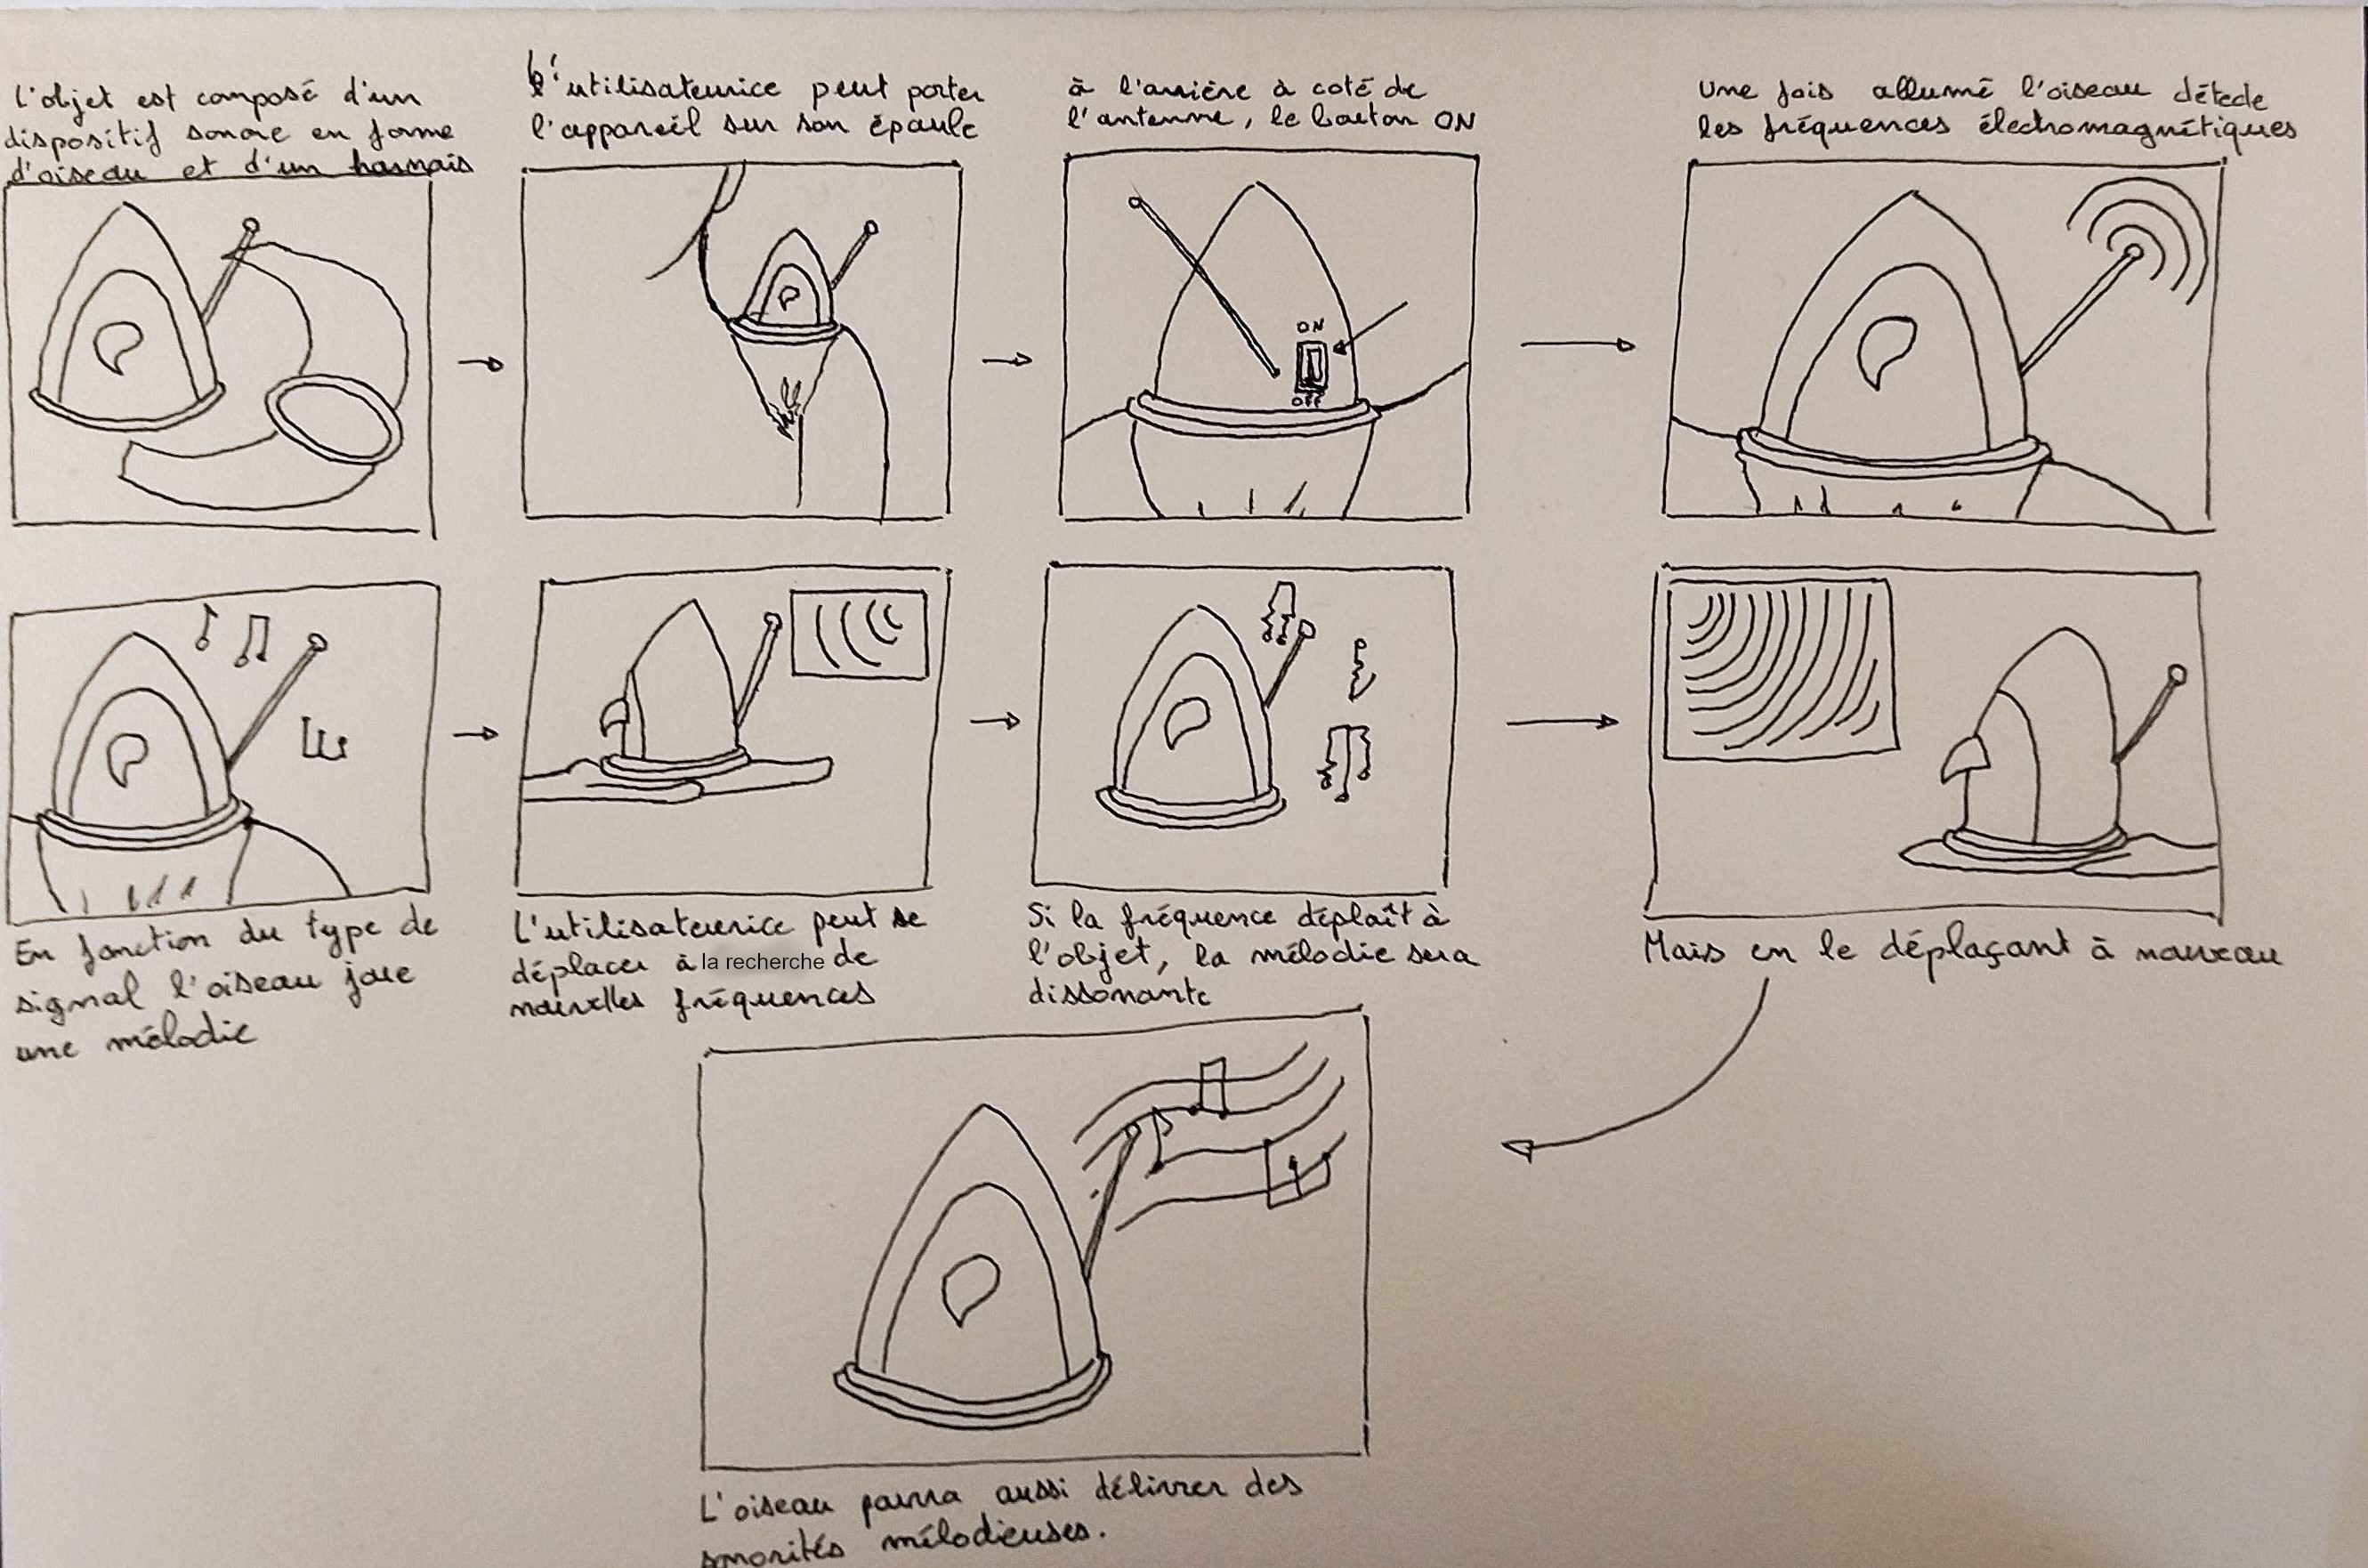 L'objet est composé d'un
dispositif sonore en forme
d'oiseau et d'un harnais
L'utilisateurice peut porter
l'appareil sur son épaule
à l'arrière à coté de
l'antenne, le bouton ON
Une fois allumé l'oiseau détecte
les fréquences électromagnétiques
ON
OFF
En fonction du type de
signal l'oiseau joue
une mélodie
L'utilisateurice peut se
déplacer à la recherche de
nouvelles fréquences
Si la fréquence déplaît à
l'objet, la mélodie sera
dissonante
Mais en le déplaçant à nouveau
L'oiseau pourra aussi délivrer des
sonorités mélodieuses.